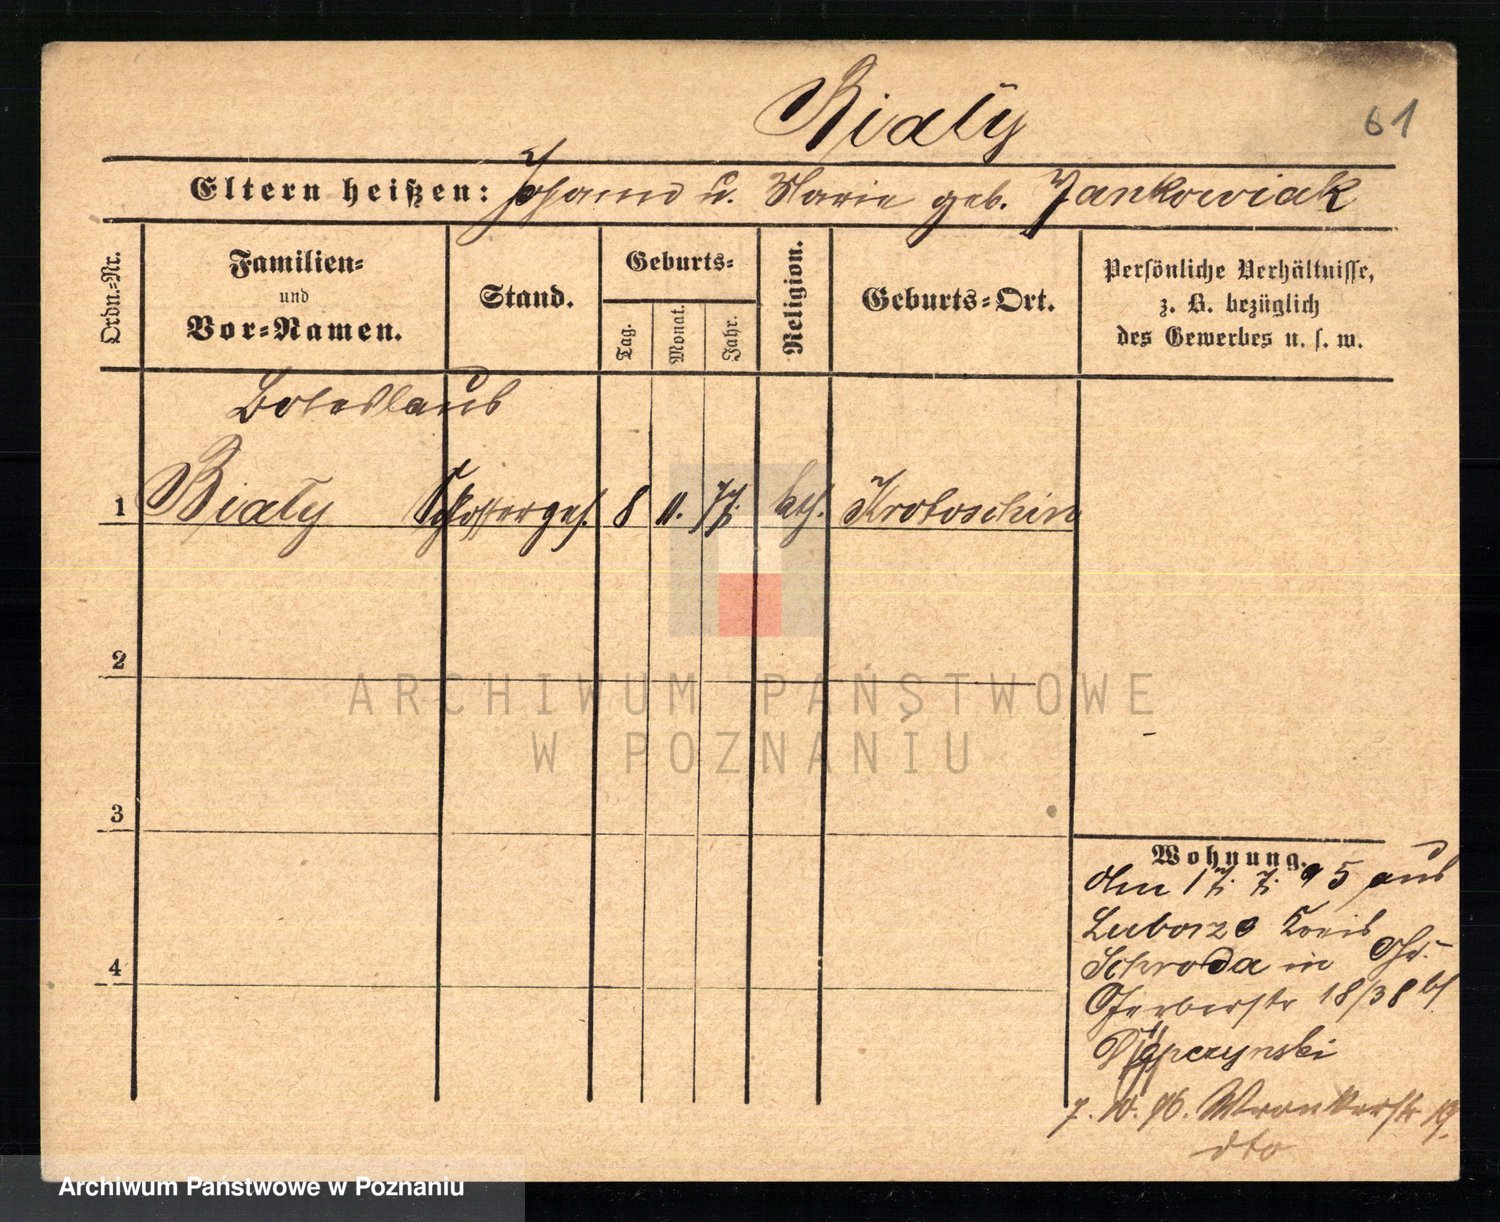 Biały
61
Eltern heißen: Johann u. Marie geb. Jankowiak
Ordn.-Nr.
Familien-
und
Vor-Namen.
Stand.
Geburts-
Tag.
Monat.
Jahr.
Religion.
Geburts-Ort.
Persönliche Verhältnisse,
z. B. bezüglich
des Gewerbes u. s. w.
Boleslaus
1 Biały Schlosserges. 8 11. 77. kath. Krotoschin
2
3
4
Wohnung.
17. 7. 95 aus
Kreis
Schroda in
Gerberstr 18/38 bf
7. 10. 96. Wronkerstr 19.
dto
ARCHIWUM PAŃSTWOWE
W POZNANIU
Archiwum Państwowe w Poznaniu